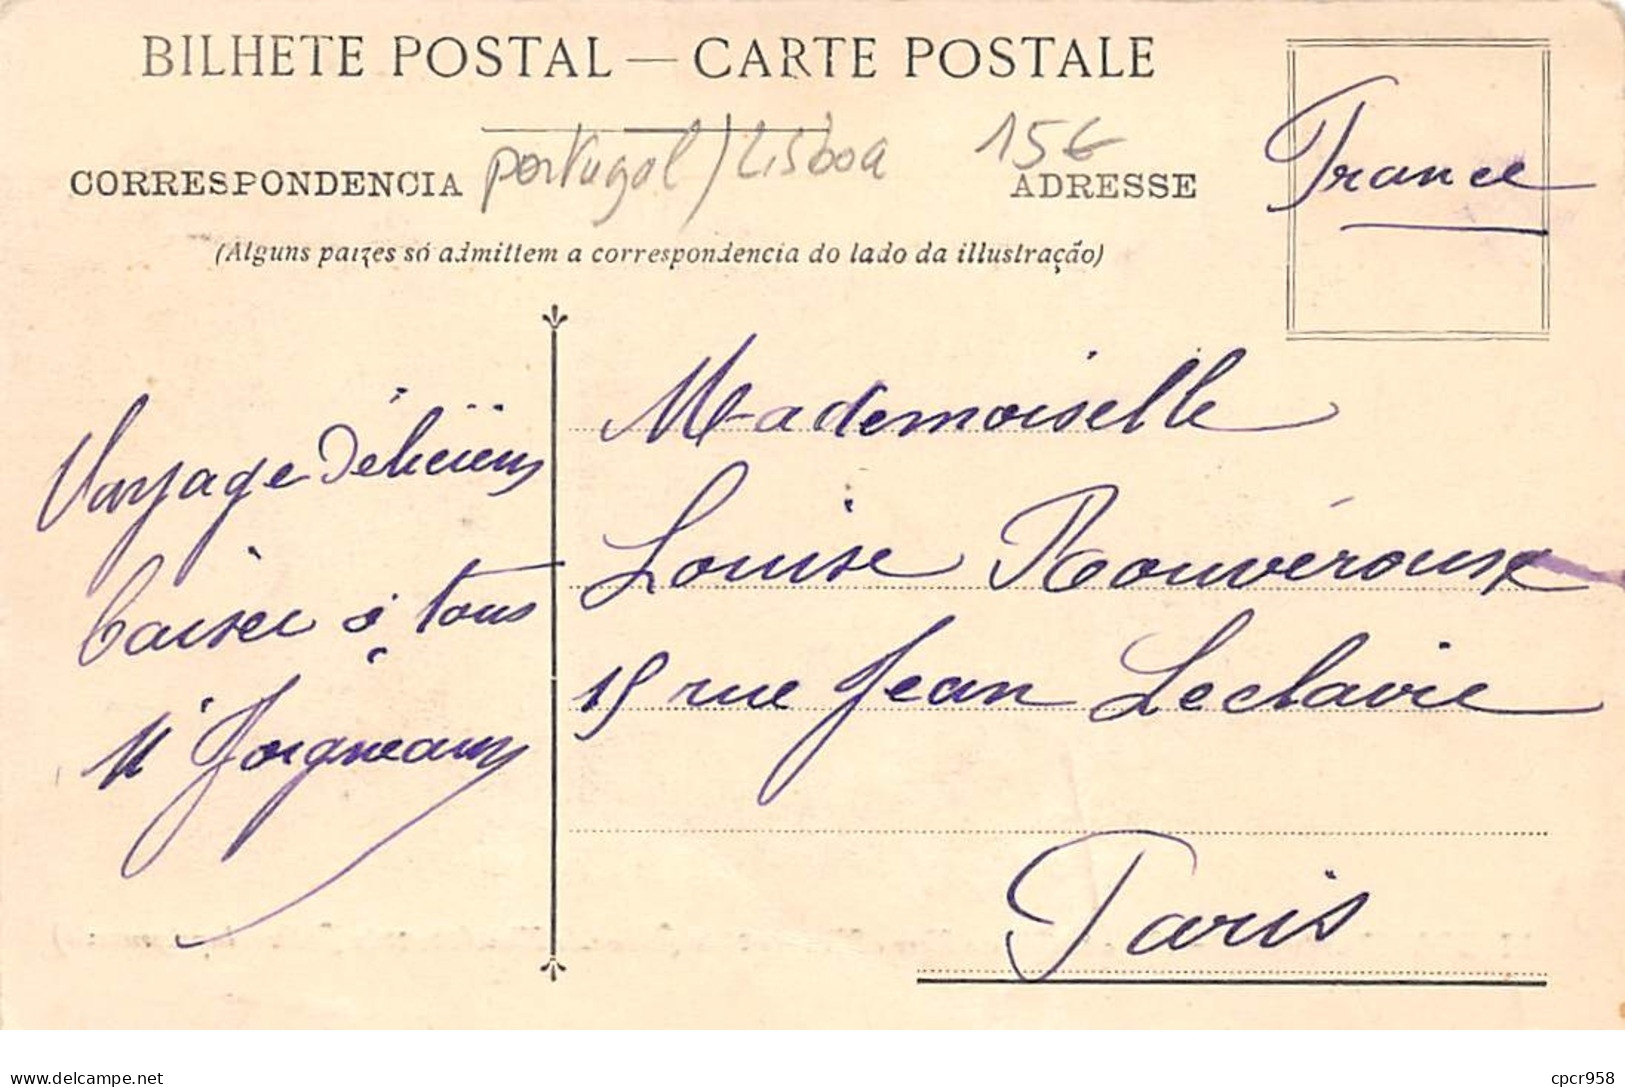 BILHETE POSTAL — CARTE POSTALE
portugal / Lisboa 15€
CORRESPONDENCIA
ADRESSE
France
(Alguns paizes só admittem a correspondencia do lado da illustração)
Voyage Délicieux
baiser à tous
M Joigneaux
Mademoiselle
Louise Rouvérouse
15 rue Jean Leclaire
Paris
delcampe.net
cpcr958